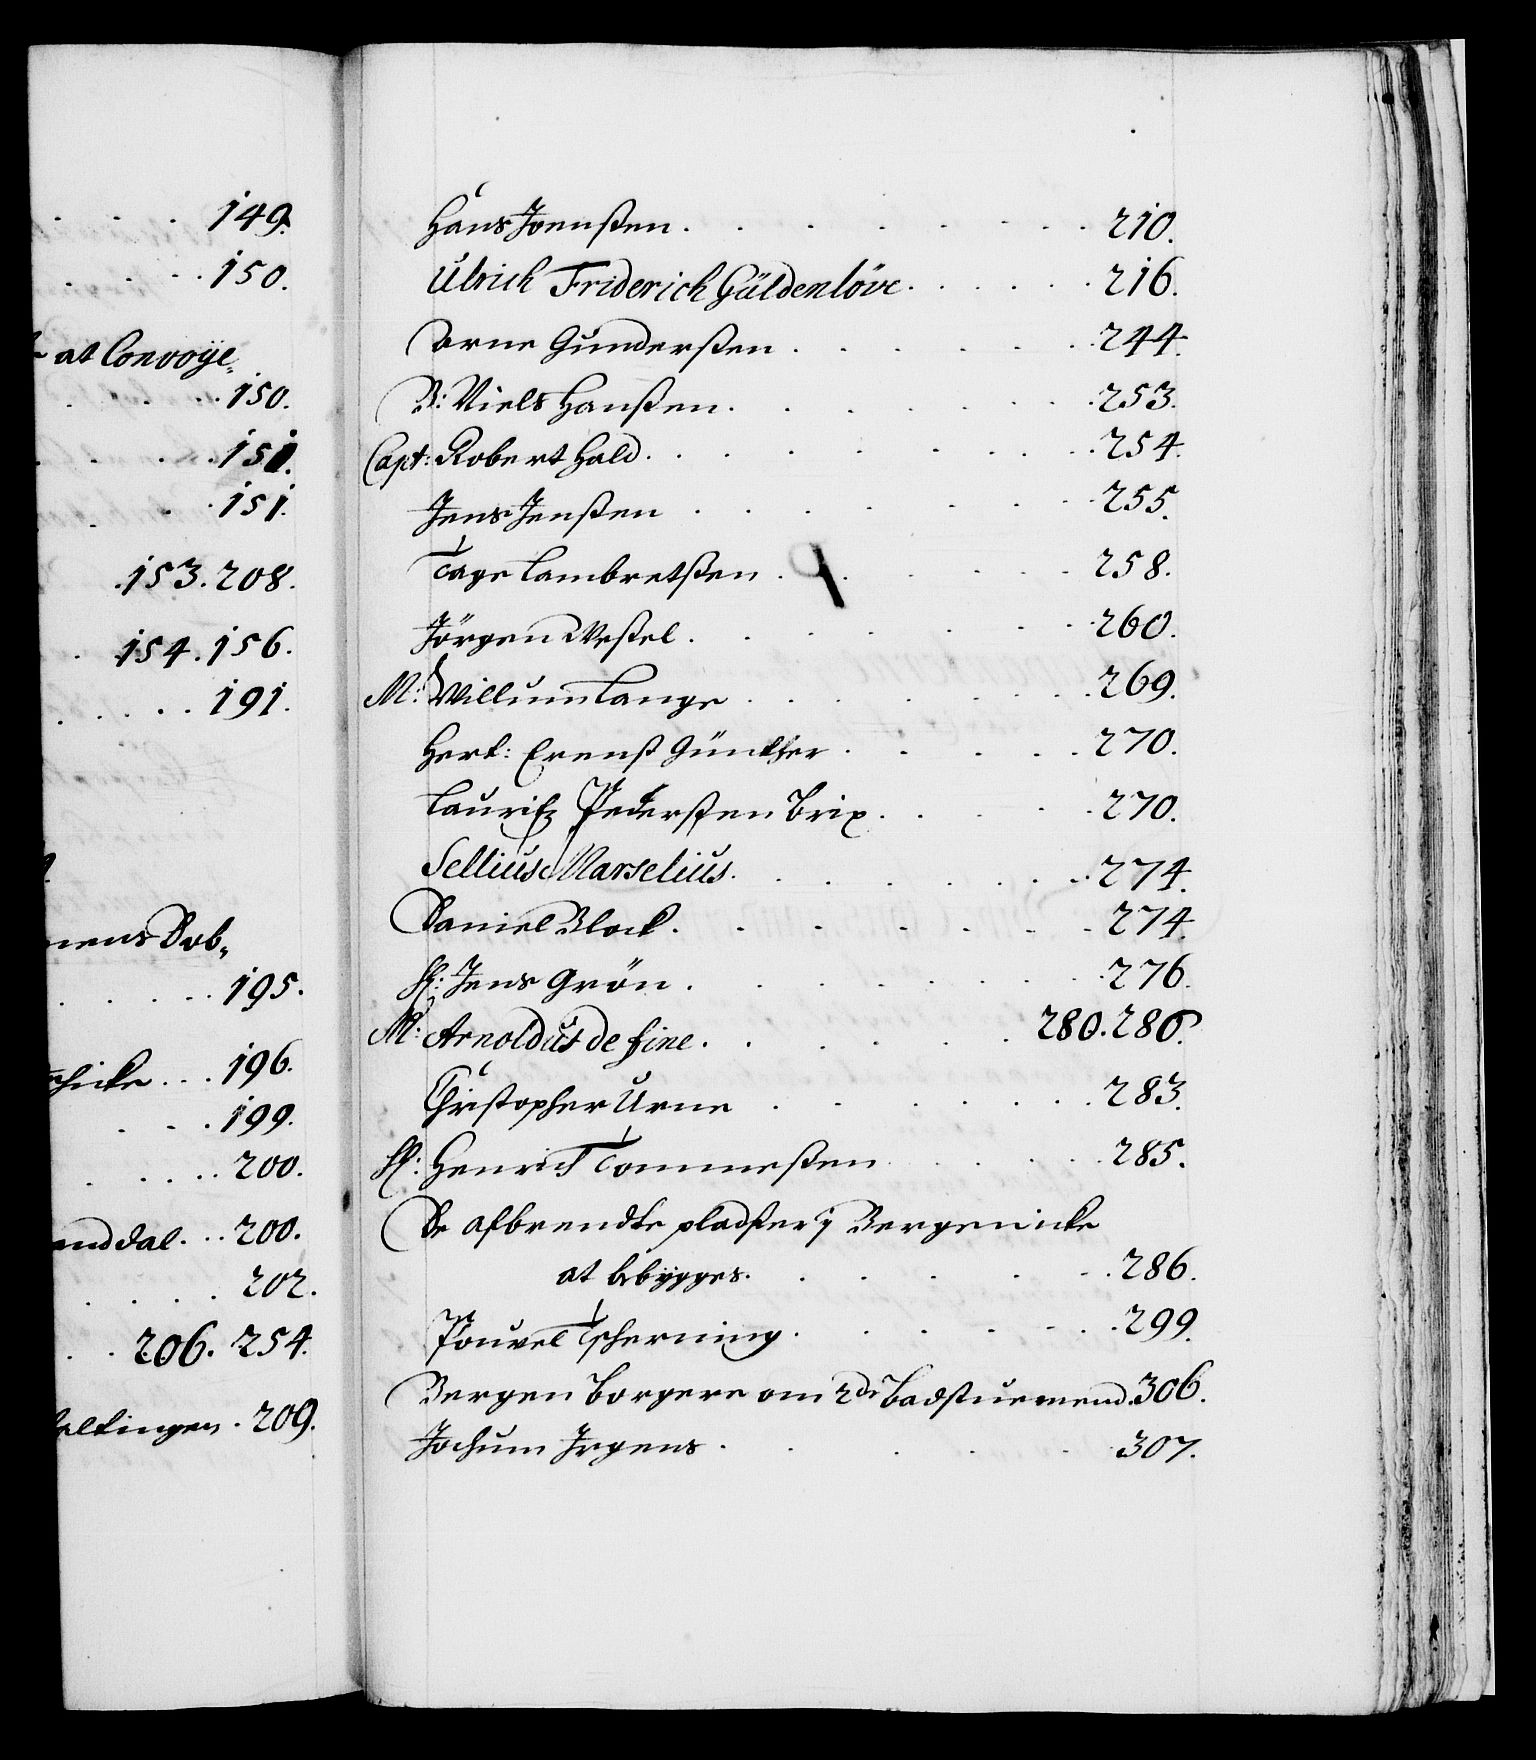 149.
150.
at Convoÿe,
150.
151.
151.
153. 208.
154. 156.
191.
nens Dob,
195.
196.
199.
200.
anddal. . . 200.
202.
206. 254.
209.
Hans Joenßen . . . . . . . 210.
Ulrich Friderich Güldenlöve . . . . . . 216.
Arne Gunderßen . . . . . . 244.
B: Niels Hanßen . . . . . . . 253.
Capt: Robert Hald . . . . . . . . 254.
Jens Jenßen . . . . . . . 255.
Tage Lambretßen . . . . . . 258.
Jörgen Weßel . . . . . . . 260.
M: Willum Lange . . . . . . . 269.
Hert: Ernst Günther . . . . . 270.
Lauritz Pederßen Brix . . . . . 270.
Sellius Marselius . . . . . . . 274.
Daniel Block . . . . . . . 274.
Sl: Jens Grön . . . . . . . 276.
M: Arnoldus de fine . . . . . . 280. 286.
Christopher Urne . . . . . . . 283.
Sl: Henrich Tommeßen . . . . . 285.
De afbrendte pladßer i Bergen icke
at bebygges . . . . . . . 286.
Pouvel Tscherning . . . . . . . 299.
Bergens borgere om 2de Badstuemend. 306.
Jochum Irgens . . . . . 307.